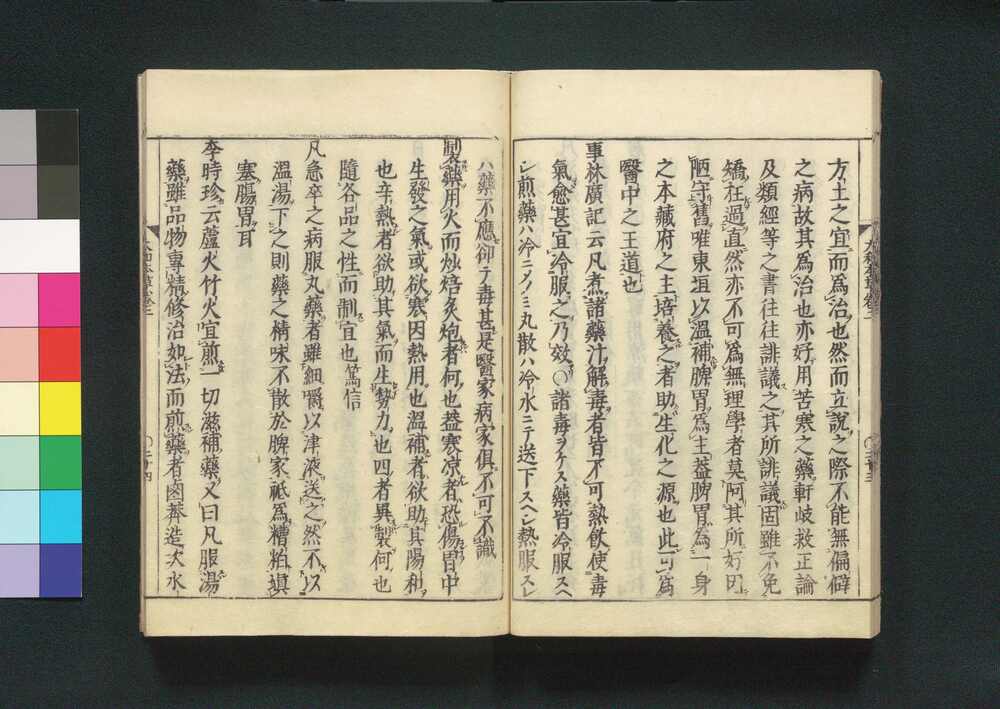 方土之宜而爲治也然而立說之際不能無偏僻
之病故其爲治也亦好用苦寒之藥軒岐救正論
及類經等之書往往誹議之其所誹議固雖不免
矯枉過直然亦不可爲無理學者莫阿其所好因
陋守舊唯東垣以溫補脾胃爲主葢脾胃爲一身
之本藏府之主培養之者助生化之源也此可爲
醫中之王道也
事林廣記云凡煮諸藥汁解毒者皆不可熱飲使毒
氣愈甚宜冷服之乃效〇諸毒ヲケス藥皆冷服スヘ
シ煎藥ハ冷ニノミ丸散ハ冷水ニテ送下スヘシ熱服スレ
ハ藥不應卻テ毒甚是醫家病家俱不可不識
製藥用火而炒焙炙炮者何也葢寒凉者恐傷胃中
生發之氣或欲寒因熱用也溫補者欲助其陽和
也辛熱者欲助其氣而生勢力也四者異製何也
隨各品之性而制宜也篤信
凡急卒之病服丸藥者雖細嚼以津液送之然不以
溫湯下之則藥之情味不散於脾家祗爲糟粕塡
塞腸胃耳
李時珍云蘆火竹火宜煎一切滋補藥又曰凡服湯
藥雖品物專精修治如法而煎藥者鹵莽造次水